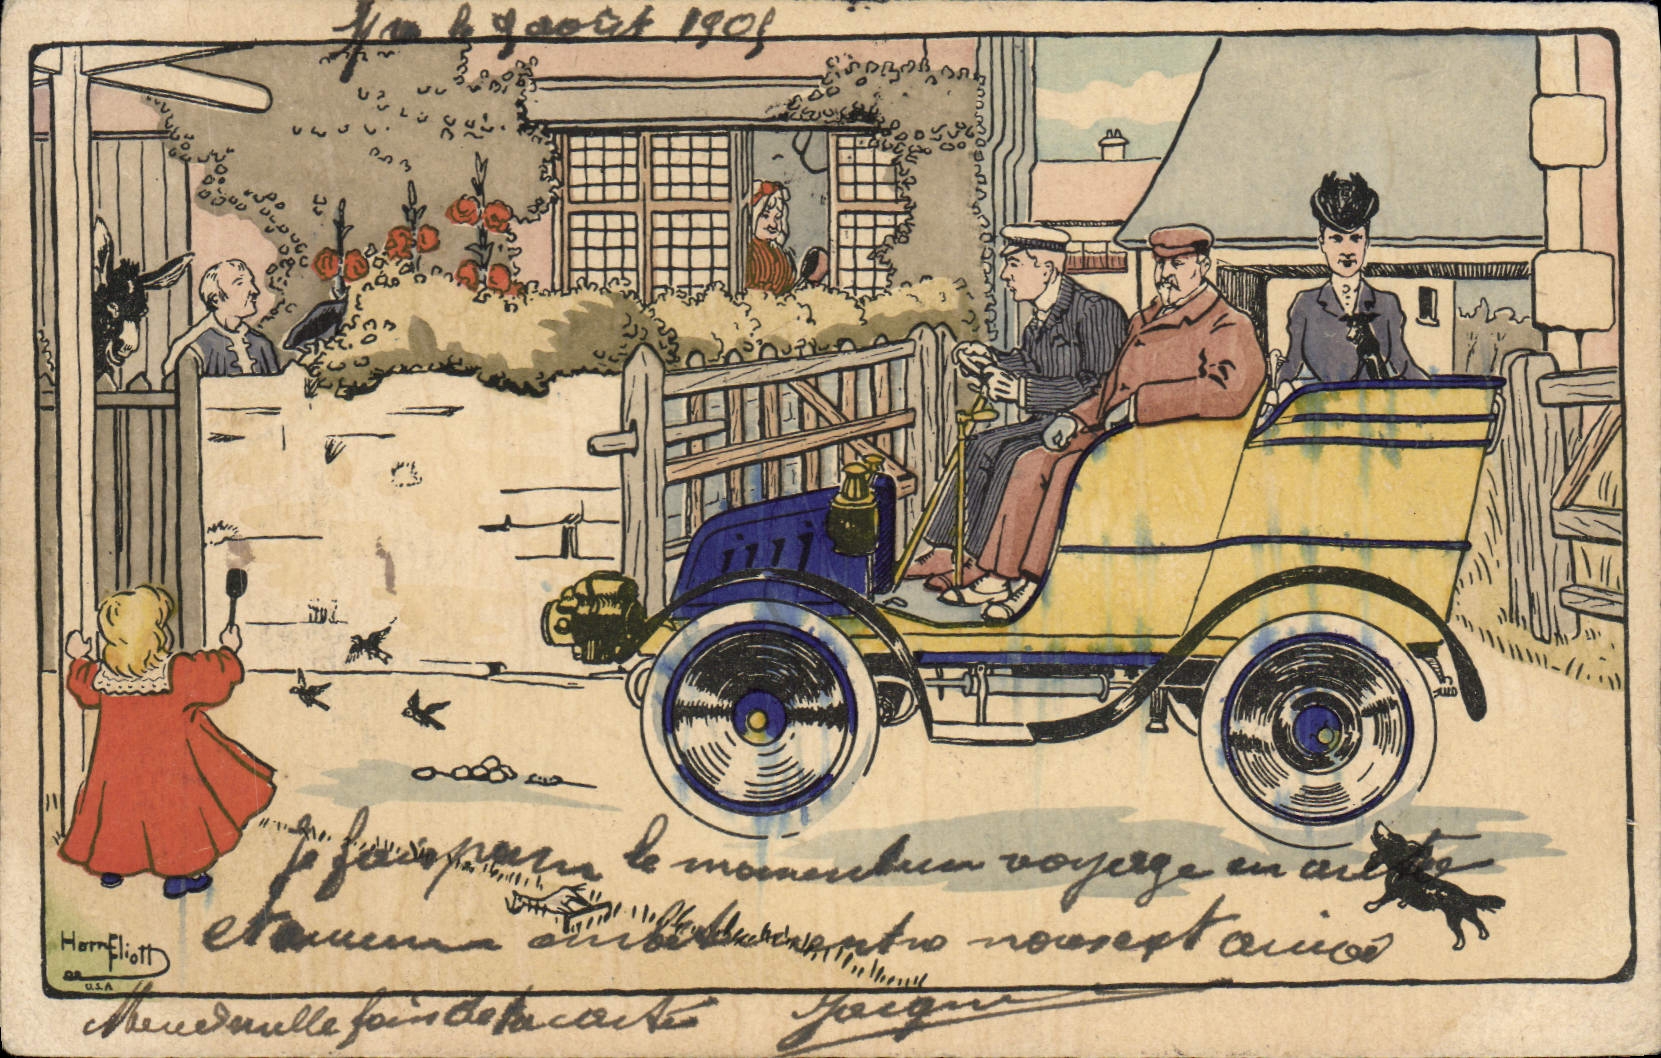 le 9 août 1905
Je fais pour le moment un voyage en auto
et aucun entre nous est arrivé
HarryEliott
U.S.A
Merci mille fois de ta carte